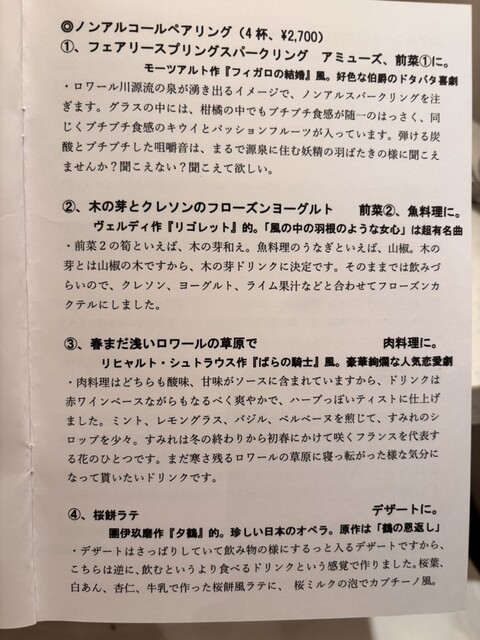 ◎ノンアルコールペアリング（4杯、¥2,700）
①、フェアリースプリングスパークリング　アミューズ、前菜①に。
モーツアルト作『フィガロの結婚』風。好色な伯爵のドタバタ喜劇
・ロワール川源流の泉が湧き出るイメージで、ノンアルスパークリングを注
ぎます。グラスの中には、柑橘の中でもプチプチ食感が随一のはっさく、同
じくプチプチ食感のキウイとパッションフルーツが入っています。弾ける炭
酸とプチプチした咀嚼音は、まるで源泉に住む妖精の羽ばたきの様に聞こえ
ませんか？聞こえない？聞こえて欲しい。
②、木の芽とクレソンのフローズンヨーグルト　前菜②、魚料理に。
ヴェルディ作『リゴレット』的。「風の中の羽根のような女心」は超有名曲
・前菜２の筍といえば、木の芽和え。魚料理のうなぎといえば、山椒。木の
芽とは山椒の木ですから、木の芽ドリンクに決定です。そのままでは飲みづ
らいので、クレソン、ヨーグルト、ライム果汁などと合わせてフローズンカ
クテルにしました。
③、春まだ浅いロワールの草原で　肉料理に。
リヒャルト・シュトラウス作『ばらの騎士』風。豪華絢爛な人気恋愛劇
・肉料理はどちらも酸味、甘味がソースに含まれていますから、ドリンクは
赤ワインベースながらもなるべく爽やかで、ハーブっぽいティストに仕上げ
ました。ミント、レモングラス、バジル、ベルベーヌを煎じて、すみれのシ
ロップを少々。すみれは冬の終わりから初春にかけて咲くフランスを代表す
る花のひとつです。まだ寒さ残るロワールの草原に寝っ転がった様な気分に
なって貰いたいドリンクです。
④、桜餅ラテ　デザートに。
團伊玖磨作『夕鶴』的。珍しい日本のオペラ。原作は「鶴の恩返し」
・デザートはさっぱりしていて飲み物の様にするっと入るデザートですから、
こちらは逆に、飲むというより食べるドリンクという感覚で作りました。桜葉、
白あん、杏仁、牛乳で作った桜餅風ラテに、桜ミルクの泡でカプチーノ風。